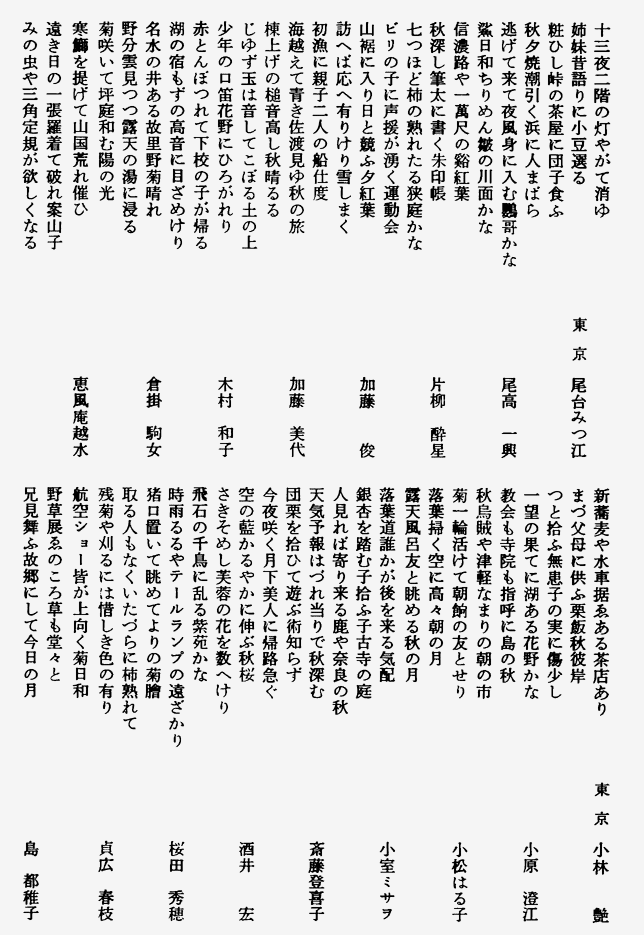 十三夜二階の灯やがて消ゆ
姉妹昔語りに小豆選る 東京 尾台みつ江
粧ひし峠の茶屋に団子食ふ
秋夕焼潮引く浜に人まばら
逃げて来て夜風身に入む鸚哥かな 尾高一興
鯊日和ちりめん皺の川面かな
信濃路や一萬尺の谿紅葉
秋深し筆太に書く朱印帳 片柳酔星
七つほど柿の熟れたる狭庭かな
ビリの子に声援が湧く運動会
山裾に入り日と競ふ夕紅葉 加藤俊
訪へば応へ有りけり雪しまく
初漁に親子二人の船仕度
海越えて青き佐渡見ゆ秋の旅 加藤美代
棟上げの槌音高し秋晴るる
じゆず玉は音してこぼる土の上
少年の口笛花野にひろがれり 木村和子
赤とんぼつれて下校の子が帰る
湖の宿もずの高音に目ざめけり
名水の井ある故里野菊晴れ 倉掛駒女
野分雲見つつ露天の湯に浸る
菊咲いて坪庭和む陽の光
寒鰤を提げて山国荒れ催ひ 恵風庵越水
遠き日の一張羅着て破れ案山子
みの虫や三角定規が欲しくなる
新蕎麦や水車据ゑある茶店あり 東京 小林艶
まづ父母に供ふ栗飯秋彼岸
つと拾ふ無患子の実に傷少し
一望の果てに湖ある花野かな 小原澄江
教会も寺院も指呼に島の秋
秋烏賊や津軽なまりの朝の市
菊一輪活けて朝餉の友とせり 小松はる子
落葉掃く空に高々朝の月
露天風呂友と眺める秋の月
落葉道誰かが後を来る気配 小室ミサヲ
銀杏を踏む子拾ふ子古寺の庭
人見れば寄り来る鹿や奈良の秋
天気予報はづれ当りで秋深む 斎藤登喜子
団栗を拾ひて遊ぶ術知らず
今夜咲く月下美人に帰路急ぐ
空の藍かるやかに伸ぶ秋桜 酒井宏
さきそめし芙蓉の花を数へけり
飛石の千鳥に乱る紫苑かな
時雨るるやテールランプの遠ざかり 桜田秀穂
猪口置いて眺めてよりの菊膾
取る人もなくいたづらに柿熟れて
残菊や刈るには惜しき色の有り 貞広春枝
航空ショー皆が上向く菊日和
野草展ゑのころ草も堂々と
兄見舞ふ故郷にして今日の月 島都稚子